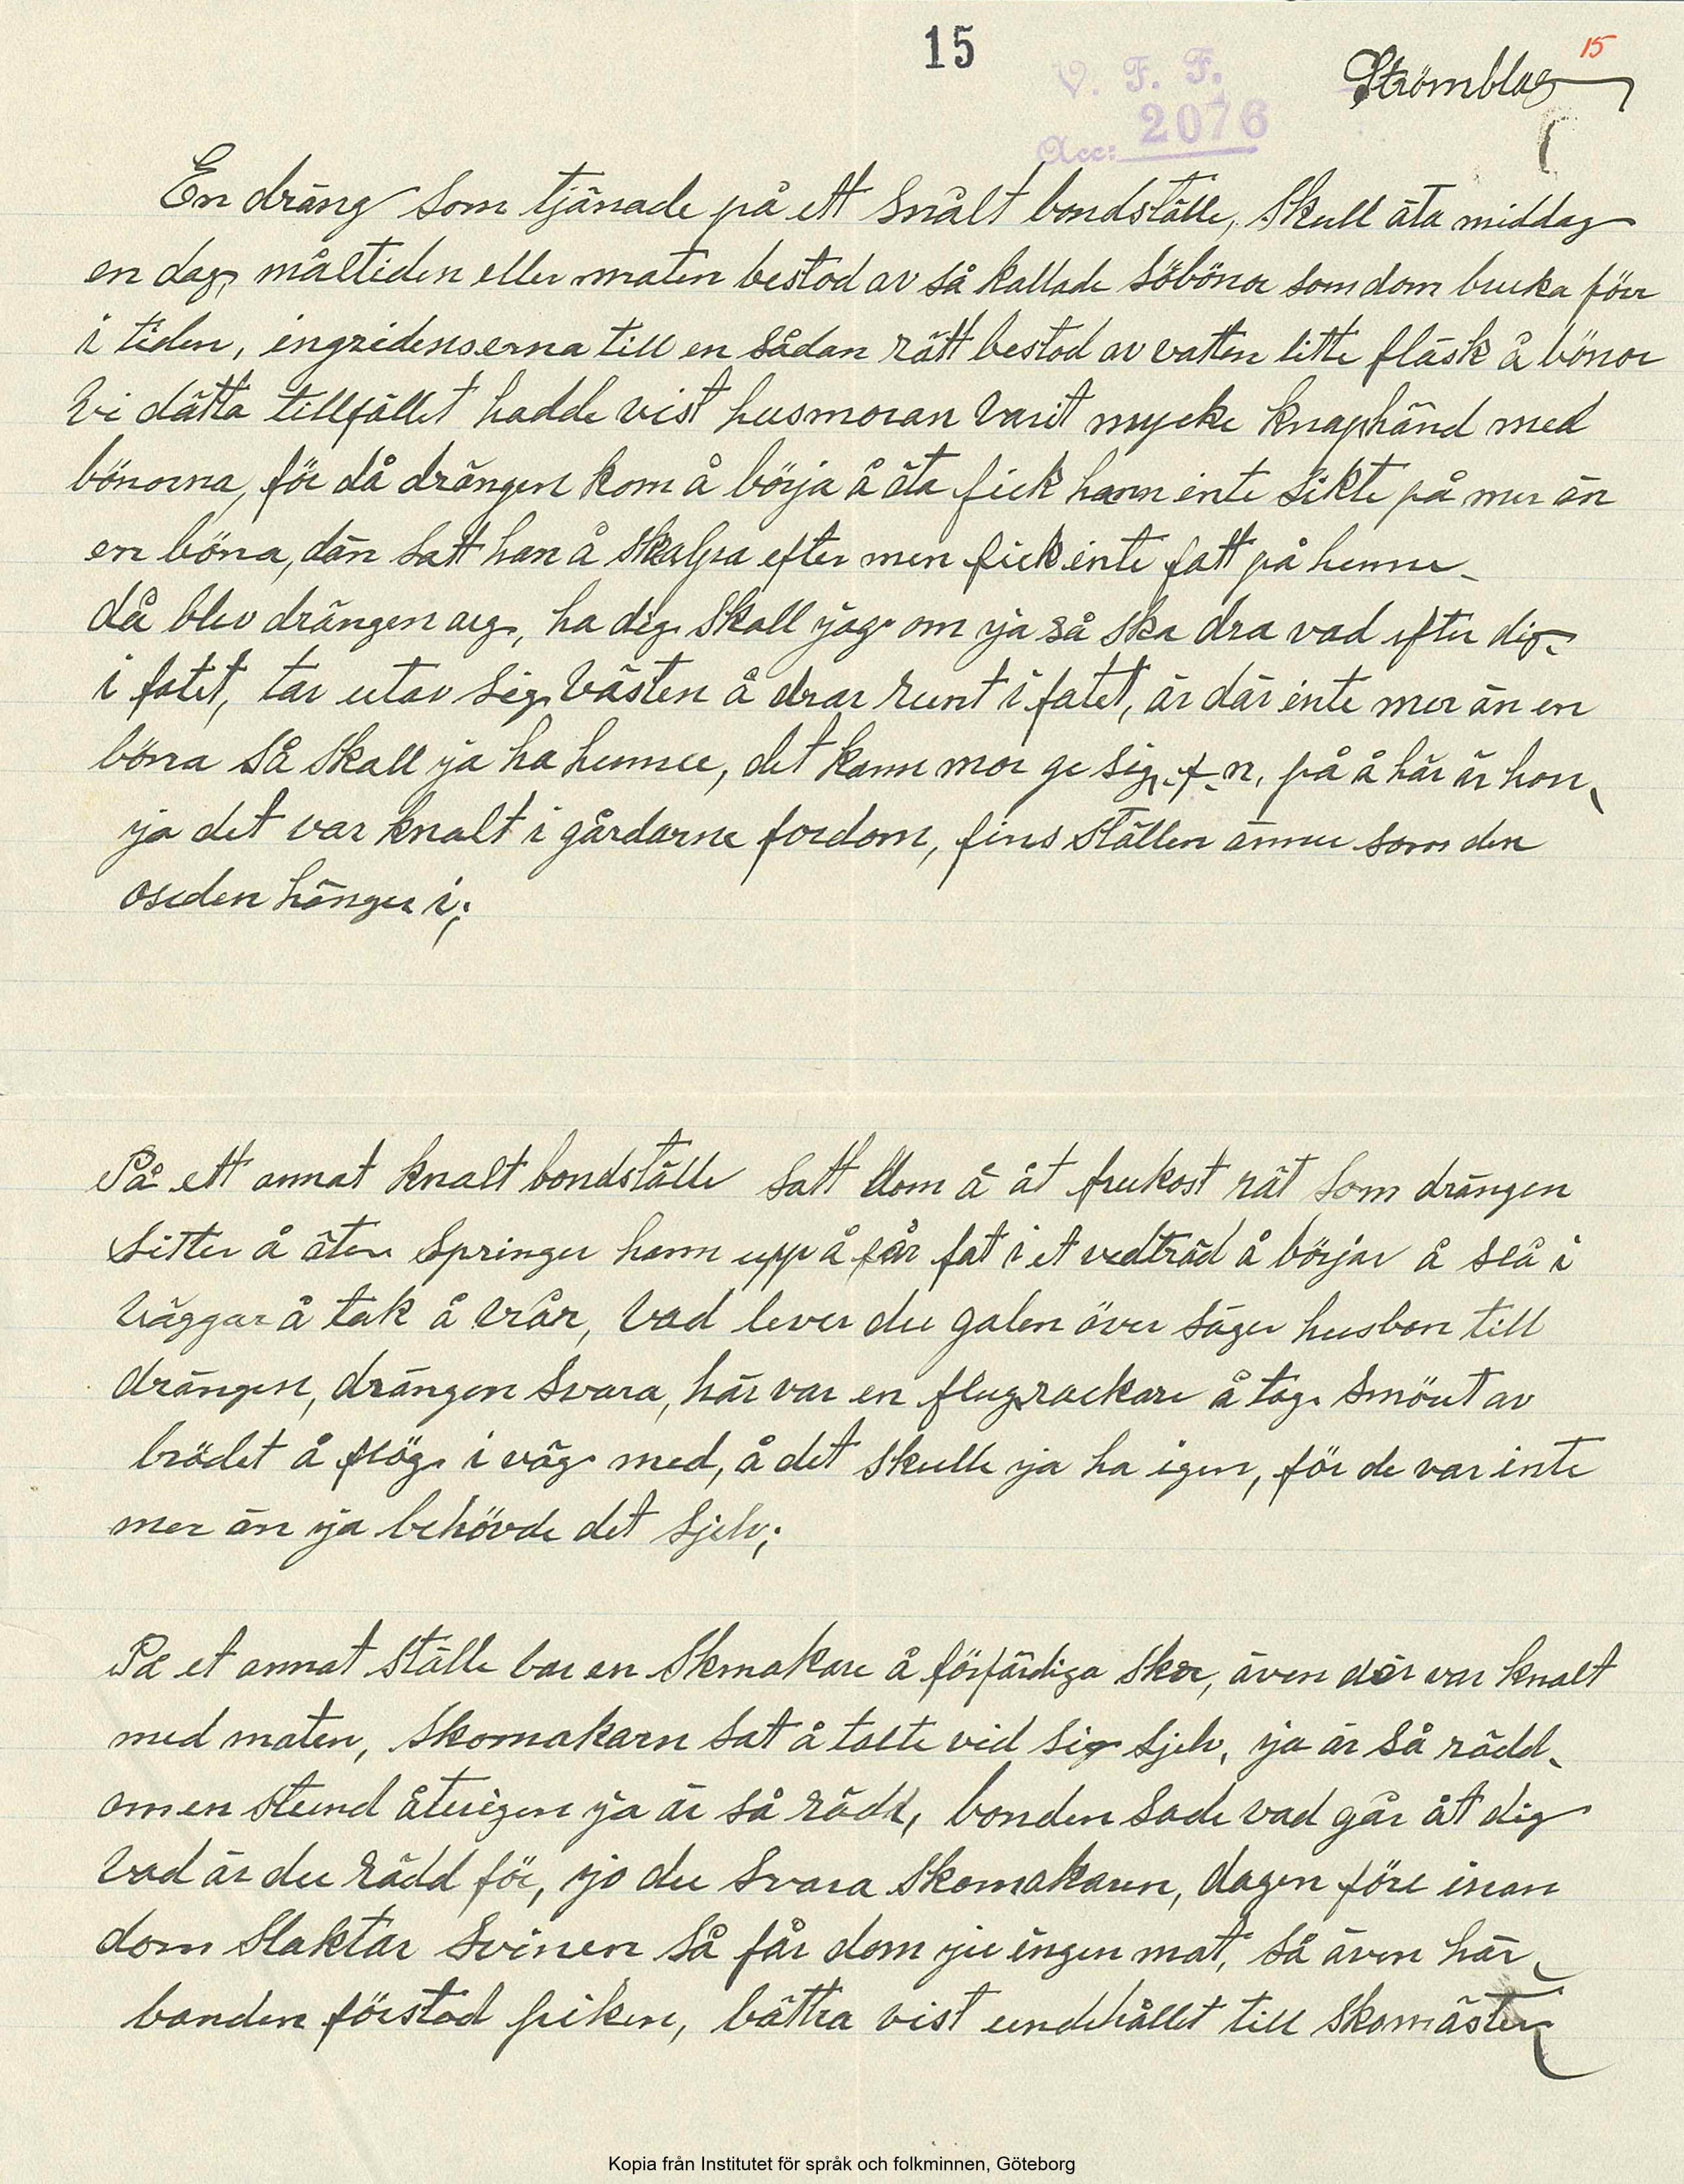 15
15
V. F. F.
Strömblad
Acc: 2076
En dräng som tjänade på ett snålt bondställe, skull äta middag
en dag, måltiden eller maten bestod av så kallade söbönor som dom bruka förr
i tiden, ingridenserna till en sådan rätt bestod av vatten litte fläsk å bönor
Vi dätta tillfället hadde vist husmoran varit mycke knaphänd med
bönorna, för då drängen kom å börja å äta fick hann inte sikte på mer än
en böna, dän satt han å skalpa efter men fick inte fatt på henne
då blev drängen arg, ha dig skall jag om ja så ska dra vad efter dig
i fatet, tar utav sig västen å drar runt i fatet, är där inte mer än en
böna så skall ja ha hennee, det kann mor ge sig f-n, på å här är hon,
ja det var knalt i gårdarne fordom, fins ställen ännu som den
oseden hänger i;
På ett annat knalt bondställe satt dom å åt frukost rät som drängen
sitter å äter springer hann upp å får fat i et vedträd å börjar å slå i
väggar å tak å vrår, vad lever du galen över säger husbon till
drängen, drängen svara, här var en flugrackare å tog smöret av
brödet å flög i väg med, å det skulle ja ha igen, för de var inte
mer än ja behövde det sjelv;
På et annat ställe var en skmakare å förfärdiga skor, även där var knalt
med maten, skomakarn sat å talte vid sig sjelv, ja är så rädd,
om en stund återigen ja är så rädd, bonden sade vad går åt dig
vad är du rädd för, jo du svara skomakaren, dagen före inan
dom slaktar svinen så får dom ju ingen mat, så även här,
bonden förstod piken, bättra vist underhållet till skomästern
Kopia från Institutet för språk och folkminnen, Göteborg